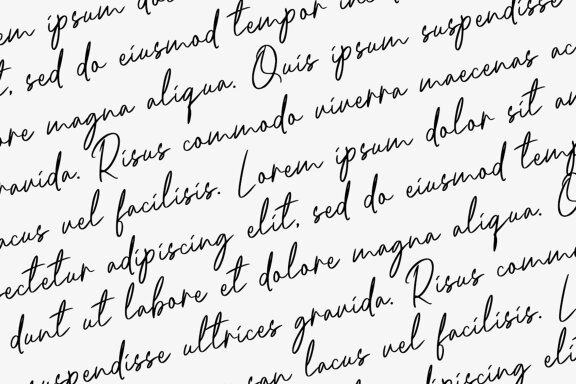 em ipsum do
t, sed do eiusmod tempor in
ore magna aliqua. Quis ipsum suspendisse
ravida. Risus commodo viverra maecenas ac
acus vel facilisis. Lorem ipsum dolor sit am
sectetur adipiscing elit, sed do eiusmod temp
dunt ut labore et dolore magna aliqua. Q
suspendisse ultrices gravida. Risus comm
san lacus vel facilisis. L
dipiscing eli